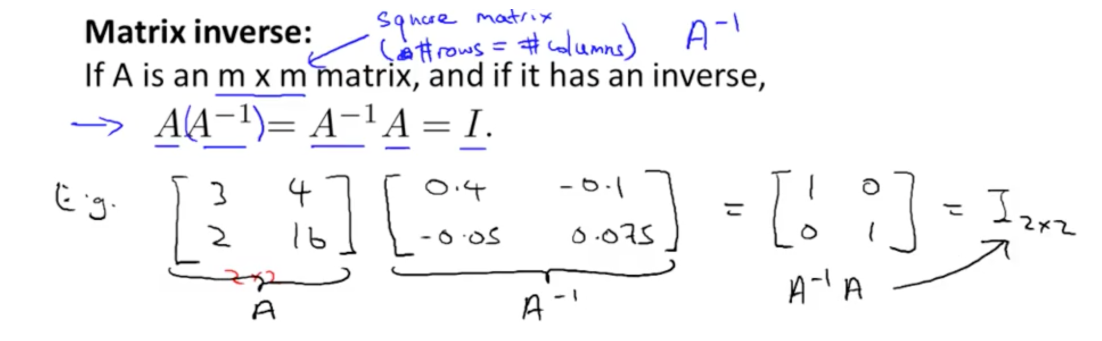 square matrix
Matrix inverse: (#rows = #columns) A⁻¹
If A is an m x m matrix, and if it has an inverse,
→ A(A⁻¹) = A⁻¹A = I.
E.g. [3 4; 2 16] [0.4 -0.1; -0.05 0.075] = [1 0; 0 1] = I₂ₓ₂
2x2
A A⁻¹ A⁻¹A